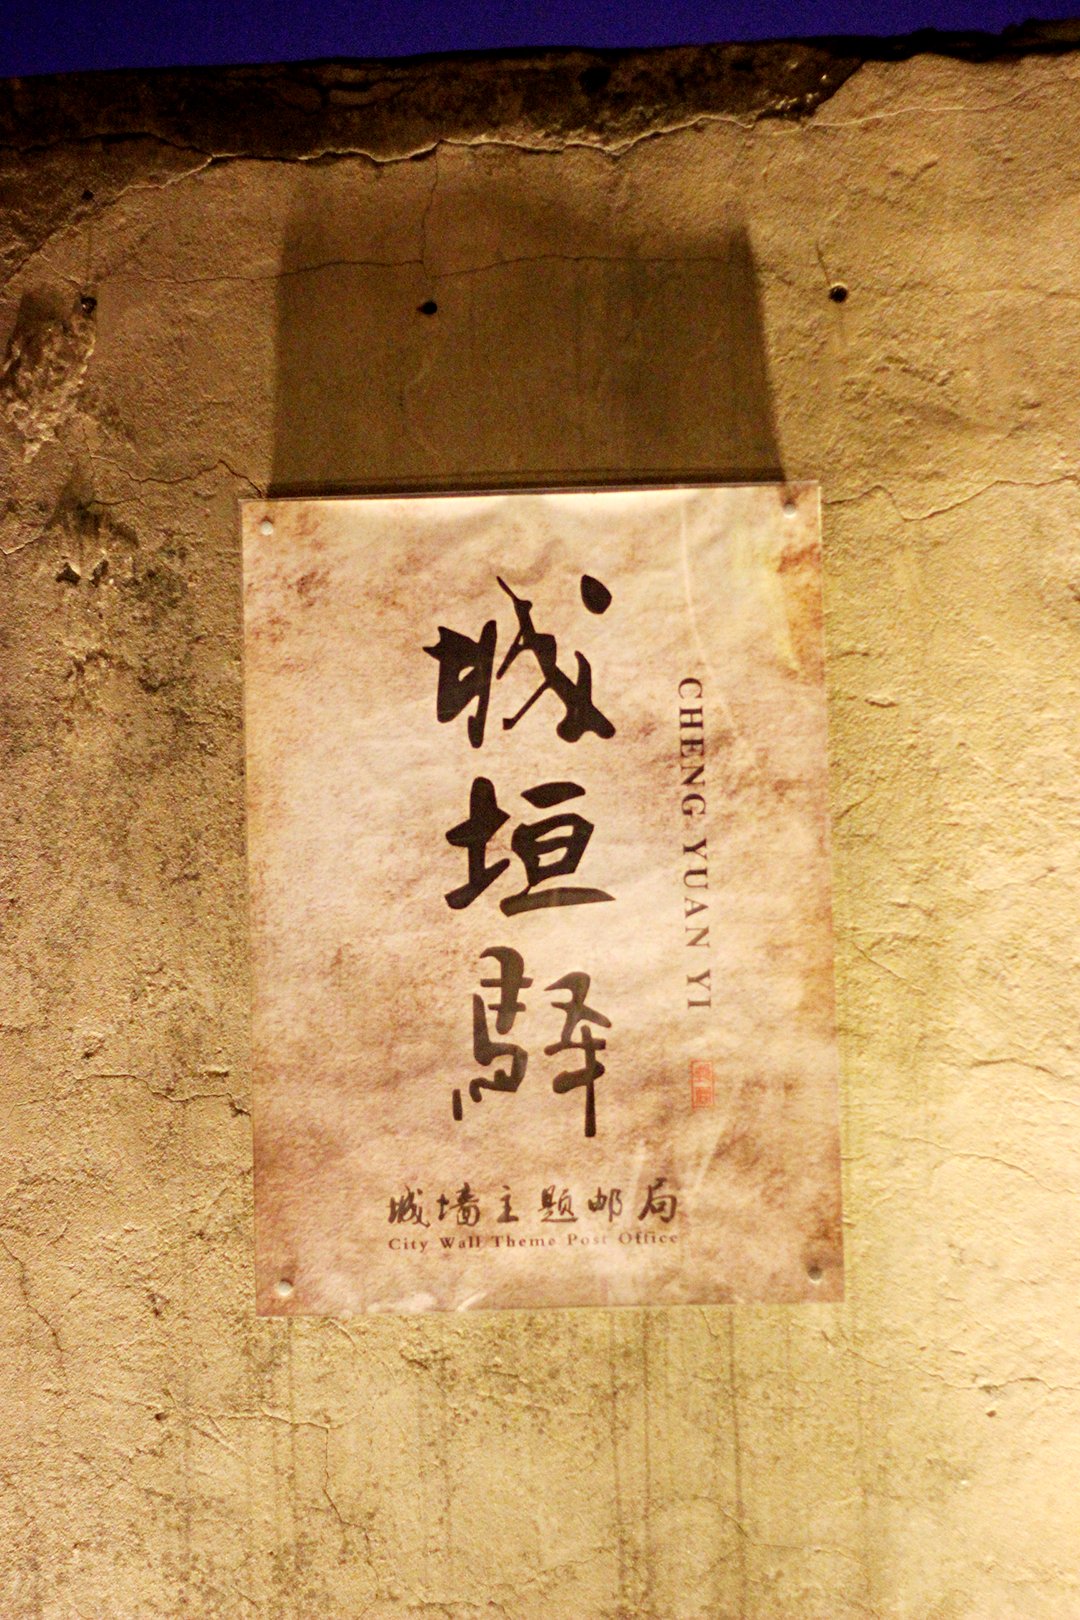 城垣驿
CHENG YUAN YI
城墙主题邮局
City Wall Theme Post Office